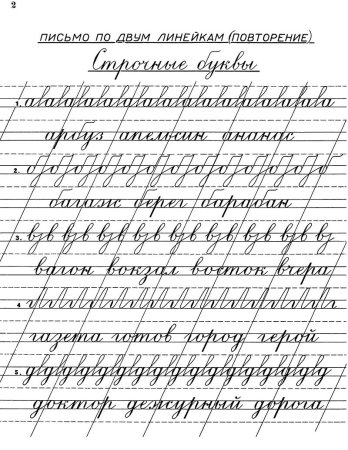 2
ПИСЬМО ПО ДВУМ ЛИНЕЙКАМ (ПОВТОРЕНИЕ)
Строчные буквы
1.
арбуз апельсин ананас
2.
багаж берег барабан
3.
вагон вокзал восток вчера
4.
газета готов город герой
5.
доктор дежурный дорога